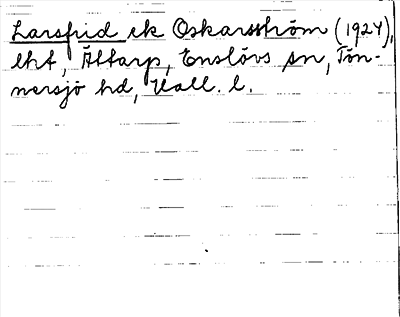 Larsfrid ek Oskarsström (1924),
lht, Ättarp, Enslövs sn, Tön-
nersjö hd, Hall. l.